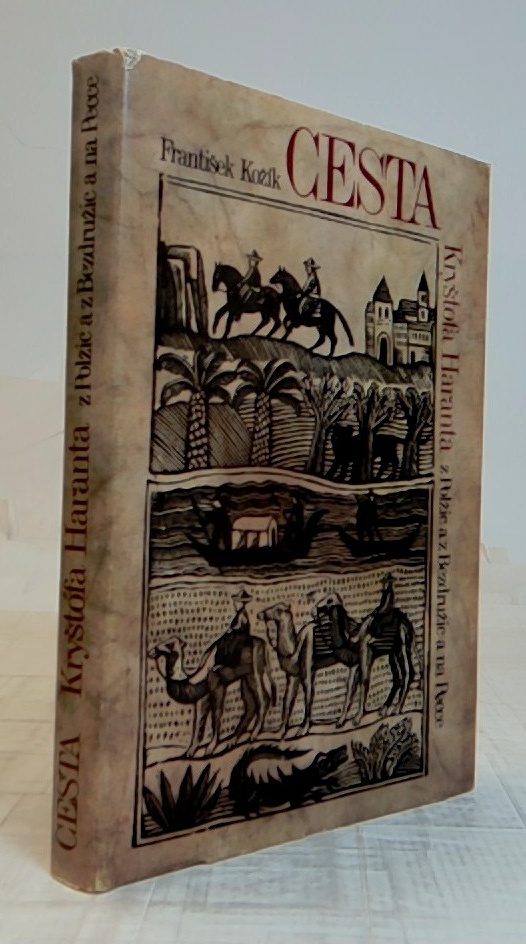 František Kožík
CESTA
Kryštofa Haranta z Polžic a z Bezdružic a na Pecce
CESTA Kryštofa Haranta z Polžic a z Bezdružic a na Pecce